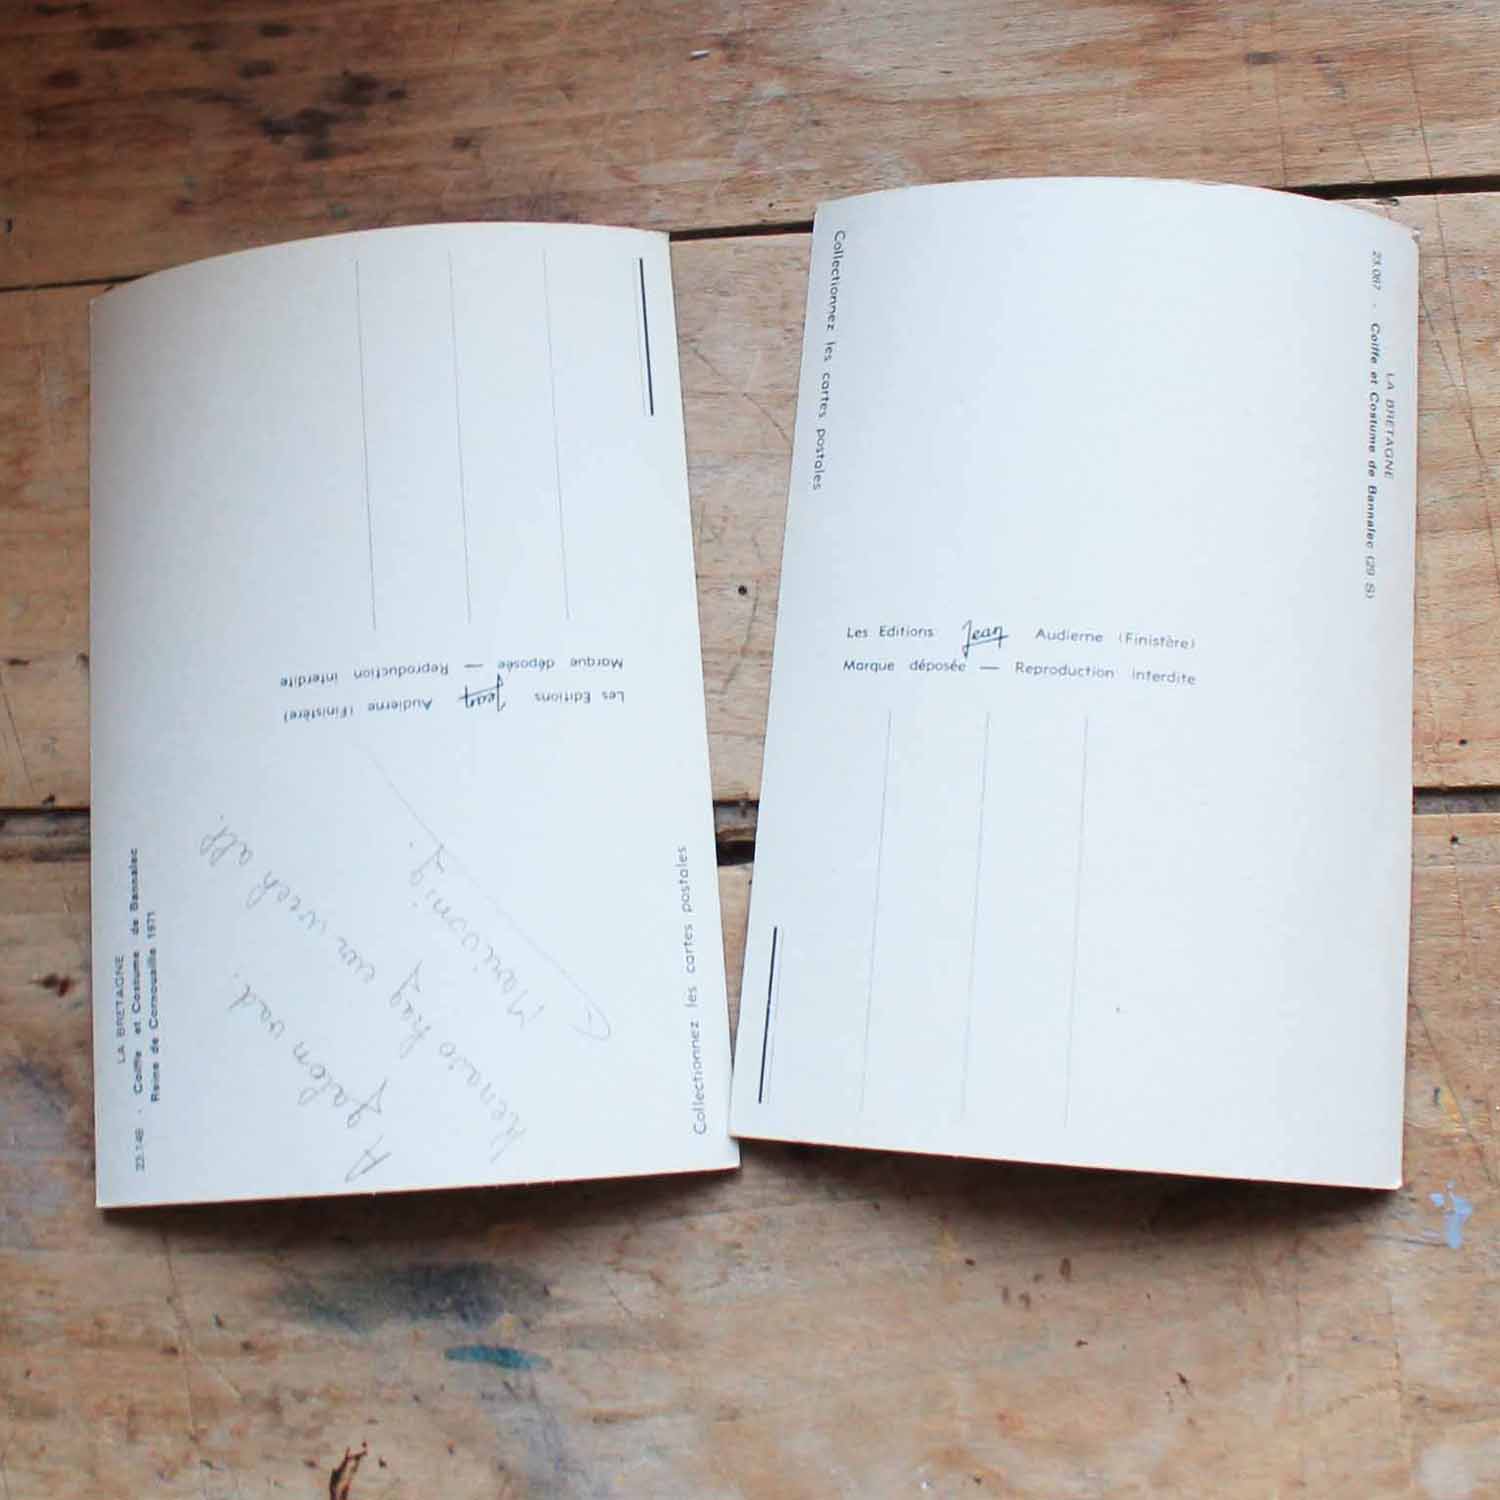 LA BRETAGNE
23.148 - Coiffe et Costume de Bannalec
Reine de Cornouaille 1971
A galon vad.
Kenavo hag eur wech all.
Marivonig.
Collectionnez les cartes postales
Les Editions Jean Audierne (Finistère)
Marque déposée — Reproduction interdite
LA BRETAGNE
23.087 - Coiffe et Costume de Bannalec (29 S)
Collectionnez les cartes postales
Les Editions Jean Audierne (Finistère)
Marque déposée — Reproduction interdite